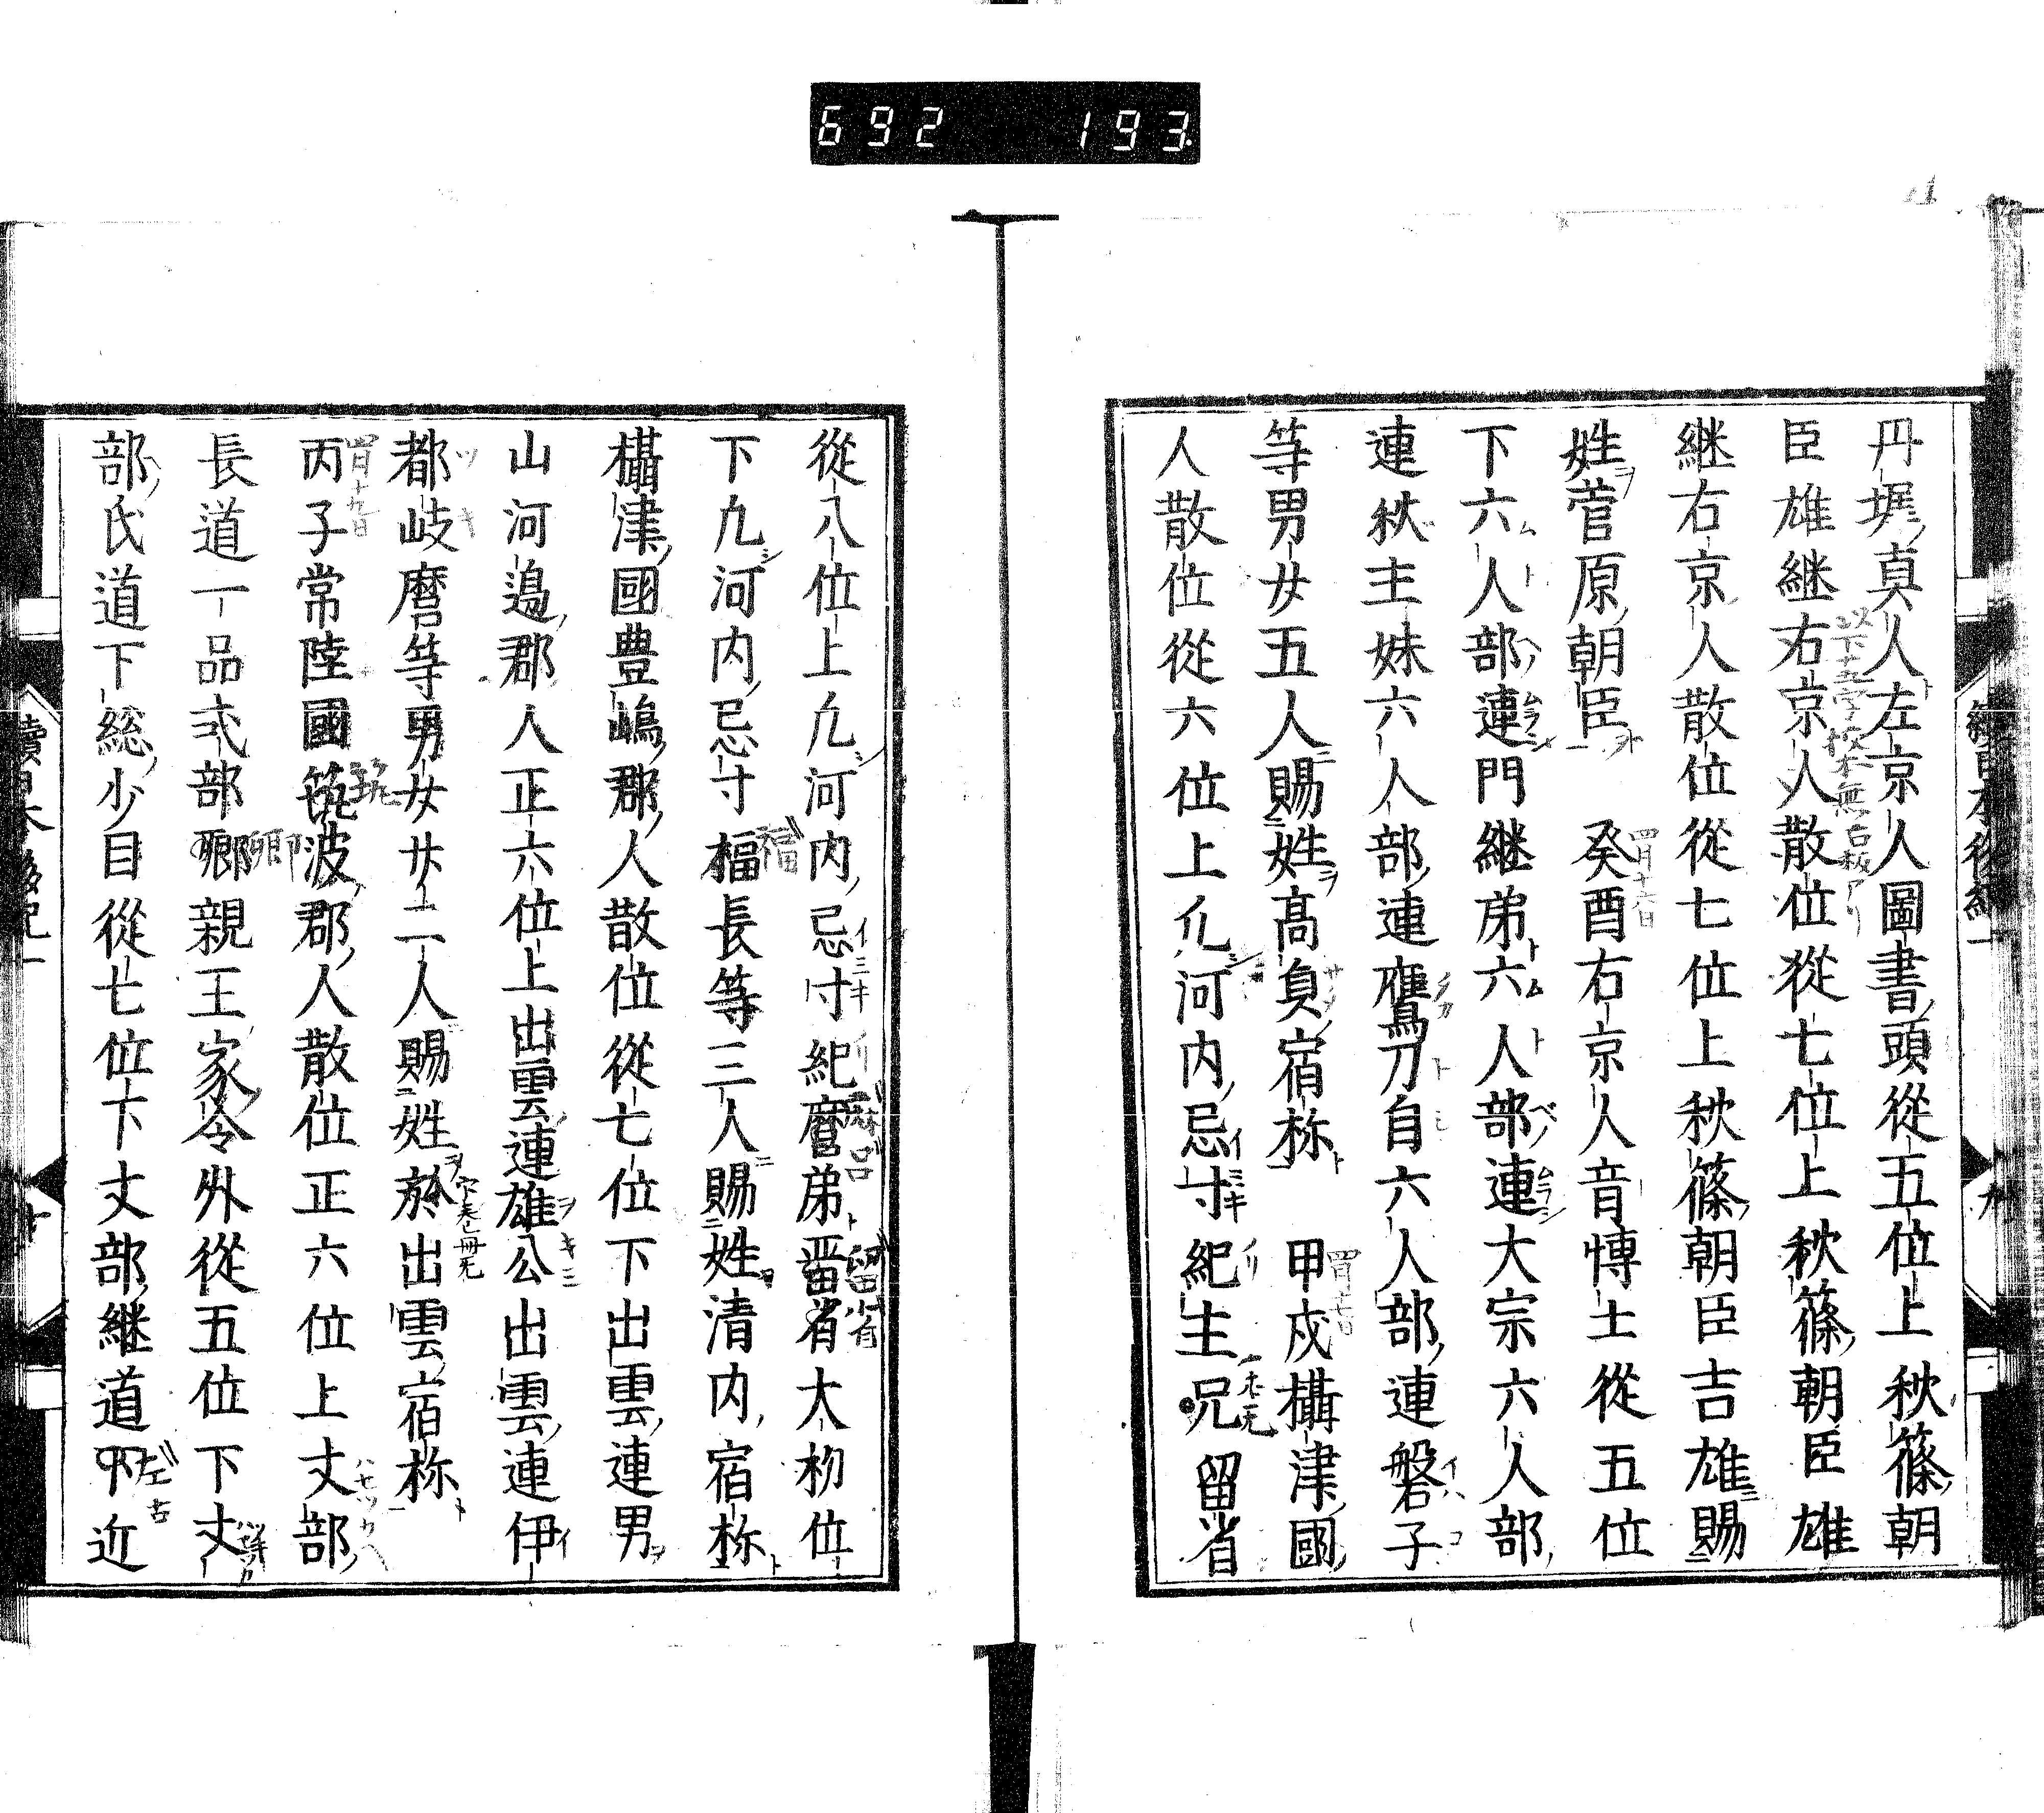 692 193
丹墀真人左京人圖書頭從五位上秋篠朝
臣雄継右京人散位從七位上秋篠朝臣雄
継右京人散位從七位上秋篠朝臣吉雄賜
姓菅原朝臣 癸酉右京人音博士從五位
下六人部連門継弟六人部連大宗六人部
連秋主妹六人部連鷹刀自六人部連磐子
等男女五人賜姓高貞宿祢 甲戌攝津國
人散位從六位上凢河内忌寸紀主兄留省
從八位上凢河内忌寸紀麿弟畱省大初位
下凢河内忌寸楅長等三人賜姓清内宿祢
攝津國豊嶋郡人散位從七位下出雲連男
山河邉郡人正六位上出雲連雄公出雲連伊
都岐麿等男女廿二人賜姓於出雲宿祢
丙子常陸國筑波郡人散位正六位上丈部
長道一品式部卿親王家令外從五位下丈
部氏道下総少目從七位下丈部継道 近